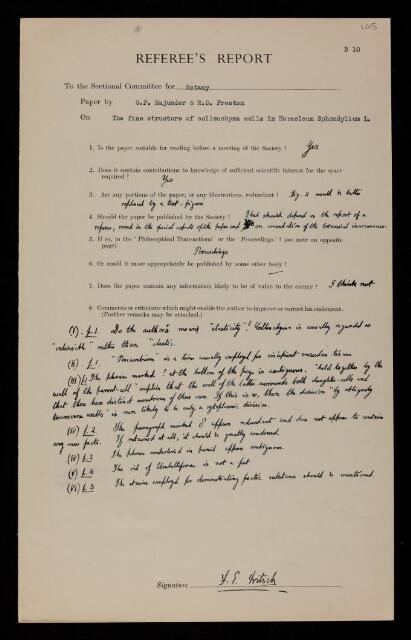 105
B 10
REFEREE'S REPORT
To the Sectional Committee for Botany
Paper by G.P. Majumder & R.D. Preston
On The fine structure of collenchyma cells in Heracleum Sphondylium L.
1. Is the paper suitable for reading before a meeting of the Society? Yes
2. Does it contain contributions to knowledge of sufficient scientific interest for the space
required? Yes
3. Are any portions of the paper, or any illustrations, redundant? Fig. 2 could be better
replaced by a text-figure
4. Should the paper be published by the Society? That should depend on the report of a
referee, versed in the special aspects of the paper and on consideration of the
5. If so, in the 'Philosophical Transactions' or the 'Proceedings'? (see note on opposite
page). Proceedings
6. Or could it more appropriately be published by some other body?
7. Does the paper contain any information likely to be of value to the enemy? I think not
8. Comments or criticisms which might enable the author to improve or correct his statement.
(Further remarks may be attached.)
(i) p.1 Do the authors mean "elasticity"? Collenchyma is usually regarded as
"extensible" rather than "elastic.
(ii) p.1 "Procambium" is a term usually employed for incipient vascular tissue
(iii) p.1 The phrase marked ? at the bottom of the page is ambiguous. "held together by the
wall of the parent-cell" implies that the wall of the latter surrounds both daughter-cells and
that these have distinct membranes of their own. If this is so, then the division "by obliquely
transverse walls" is more likely to be only a cytoplasmic division.
(iv) p.2 The paragraph marked appears redundant and does not appear to contain
any new facts. If retained at all, it should be greatly condensed.
(iv) p.3 The phrase underlined in pencil appears ambiguous.
(v) p.4 The oil of Umbelliferae is not a fat
(vi) p.3 The stains employed for demonstrating pectic substances should be mentioned.
Signature F. E. Fritsch